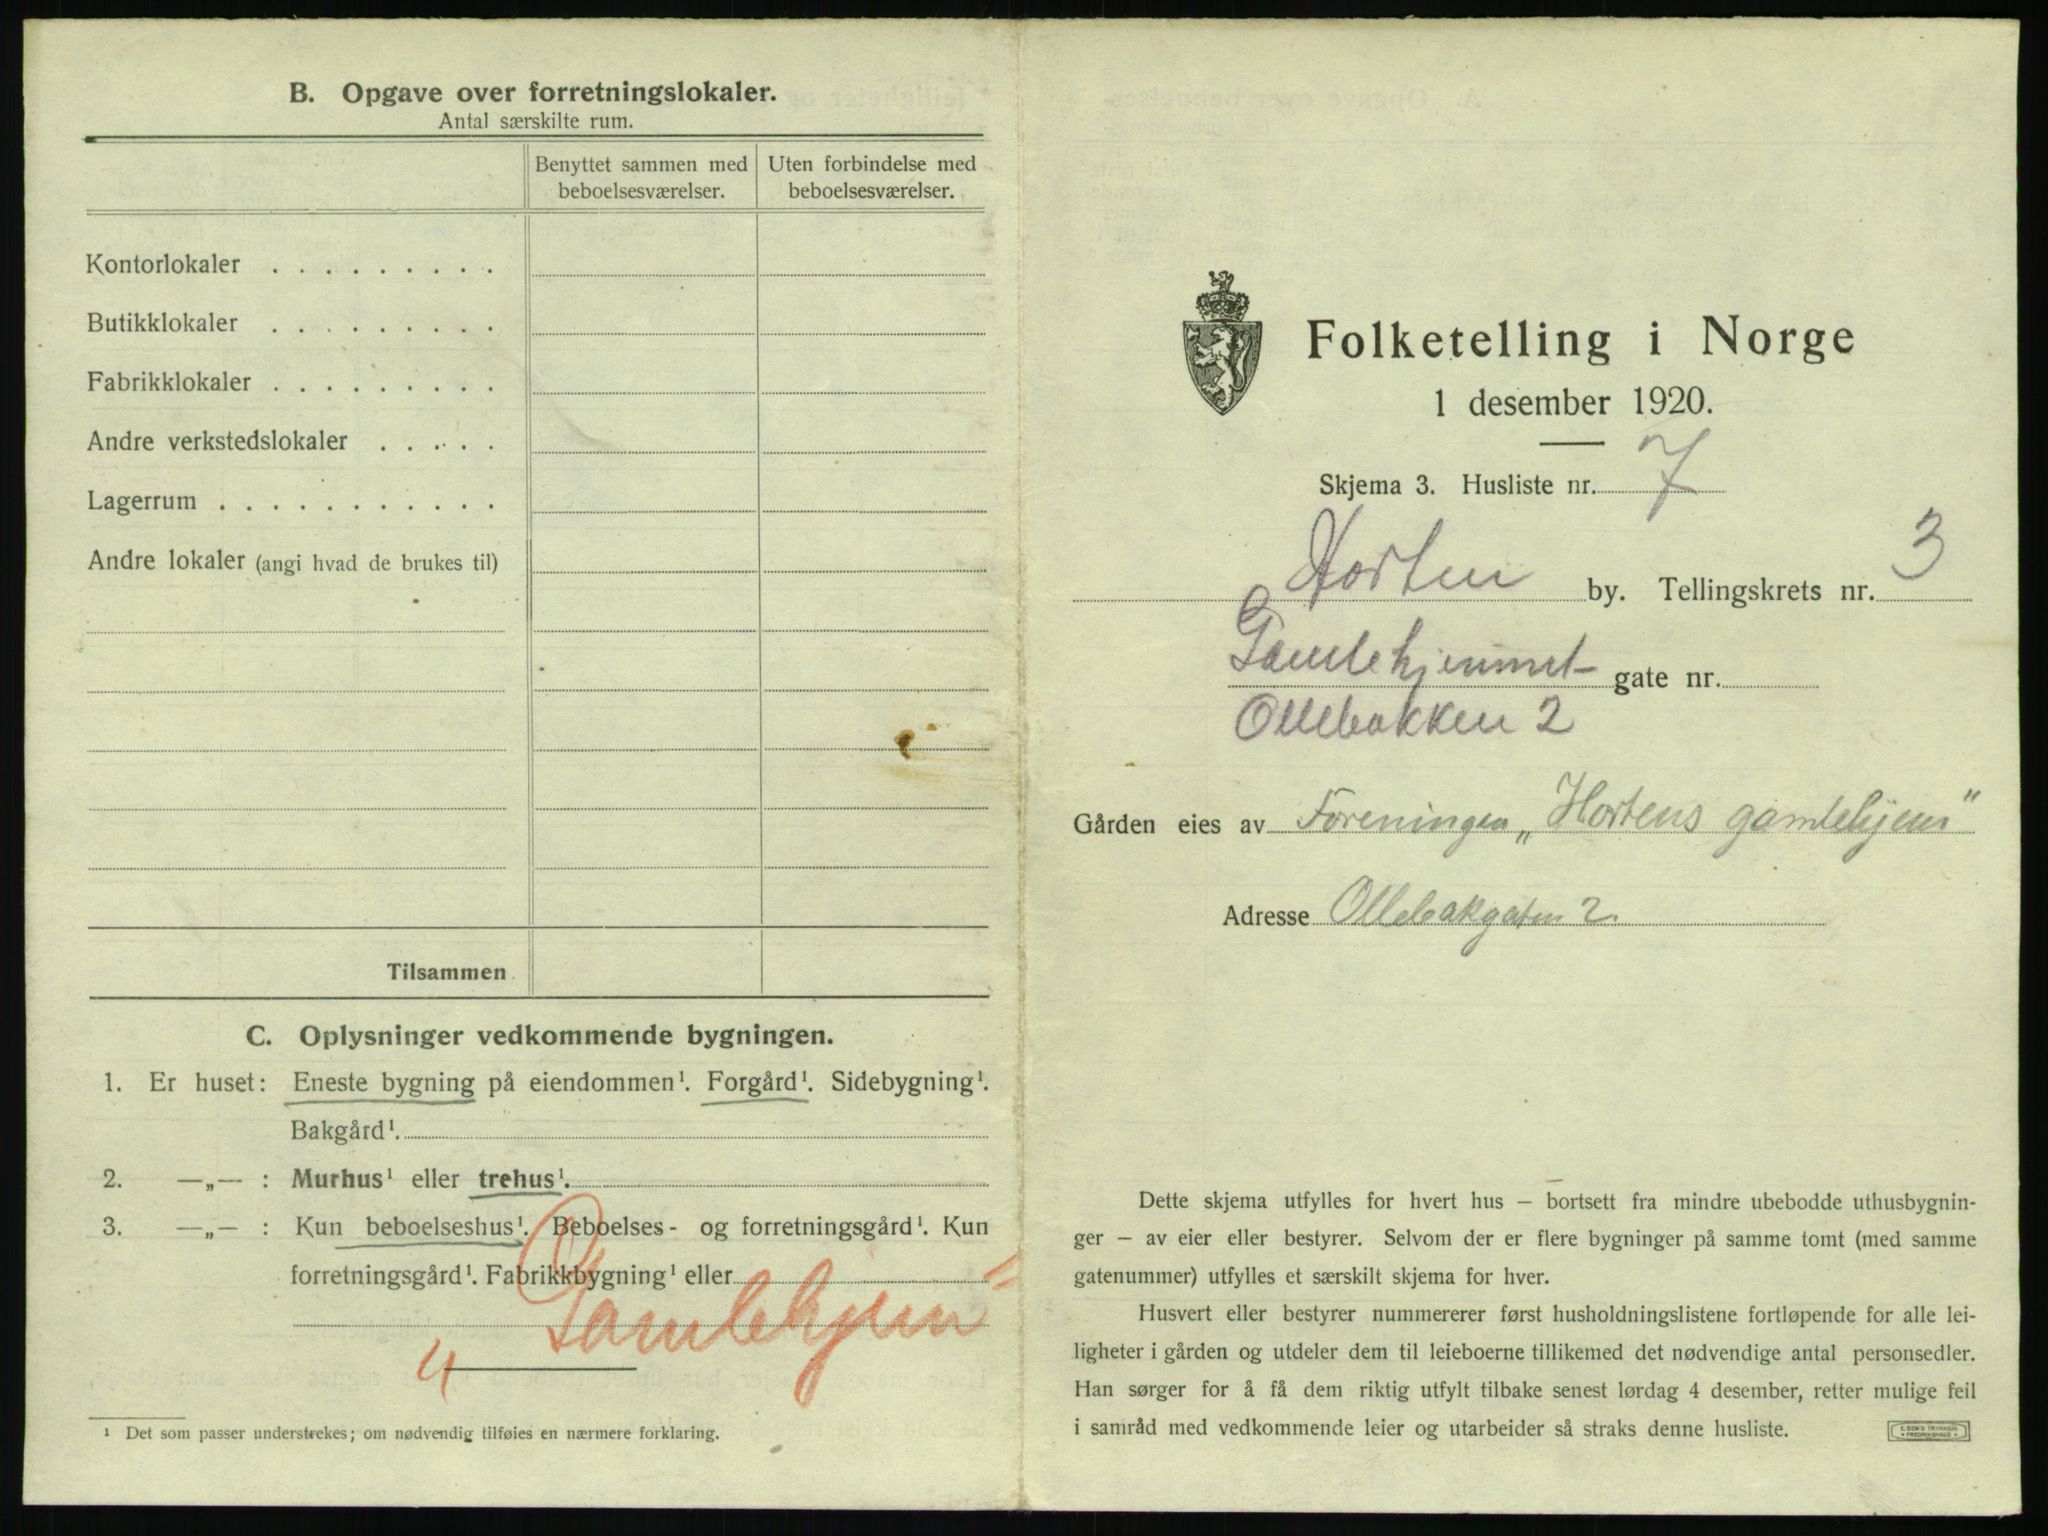 B. Opgave over forretningslokaler.
Antal særskilte rum.
Benyttet sammen med beboelsesværelser.
Uten forbindelse med beboelsesværelser.
Kontorlokaler . . . . . . . . .
Butikklokaler . . . . . . . . .
Fabrikklokaler . . . . . . . . .
Andre verkstedslokaler . . . . .
Lagerrum . . . . . . . . . . .
Andre lokaler (angi hvad de brukes til)
Tilsammen
C. Oplysninger vedkommende bygningen.
1. Er huset: Eneste bygning på eiendommen¹. Forgård¹. Sidebygning¹.
Bakgård¹.
2. —„— : Murhus¹ eller trehus¹.
3. —„— : Kun beboelseshus¹. Beboelses- og forretningsgård¹. Kun
forretningsgård¹. Fabrikkbygning¹ eller
„Gamlehjem“
¹ Det som passer understrekes; om nødvendig tilføies en nærmere forklaring.
Folketelling i Norge
1 desember 1920.
Skjema 3. Husliste nr. 7
Horten by. Tellingskrets nr. 3
Gamlehjemmet gate nr.
Ollebakken 2
Gården eies av Foreningen „Hortens gamlehjem“
Adresse Ollebakgaten 2.
Dette skjema utfylles for hvert hus – bortsett fra mindre ubebodde uthusbygnin-
ger – av eier eller bestyrer. Selvom der er flere bygninger på samme tomt (med samme
gatenummer) utfylles et særskilt skjema for hver.
Husvert eller bestyrer nummererer først husholdningslistene fortløpende for alle lei-
ligheter i gården og utdeler dem til leieboerne tillikemed det nødvendige antal personsedler.
Han sørger for å få dem riktig utfylt tilbake senest lørdag 4 desember, retter mulige feil
i samråd med vedkommende leier og utarbeider så straks denne husliste.